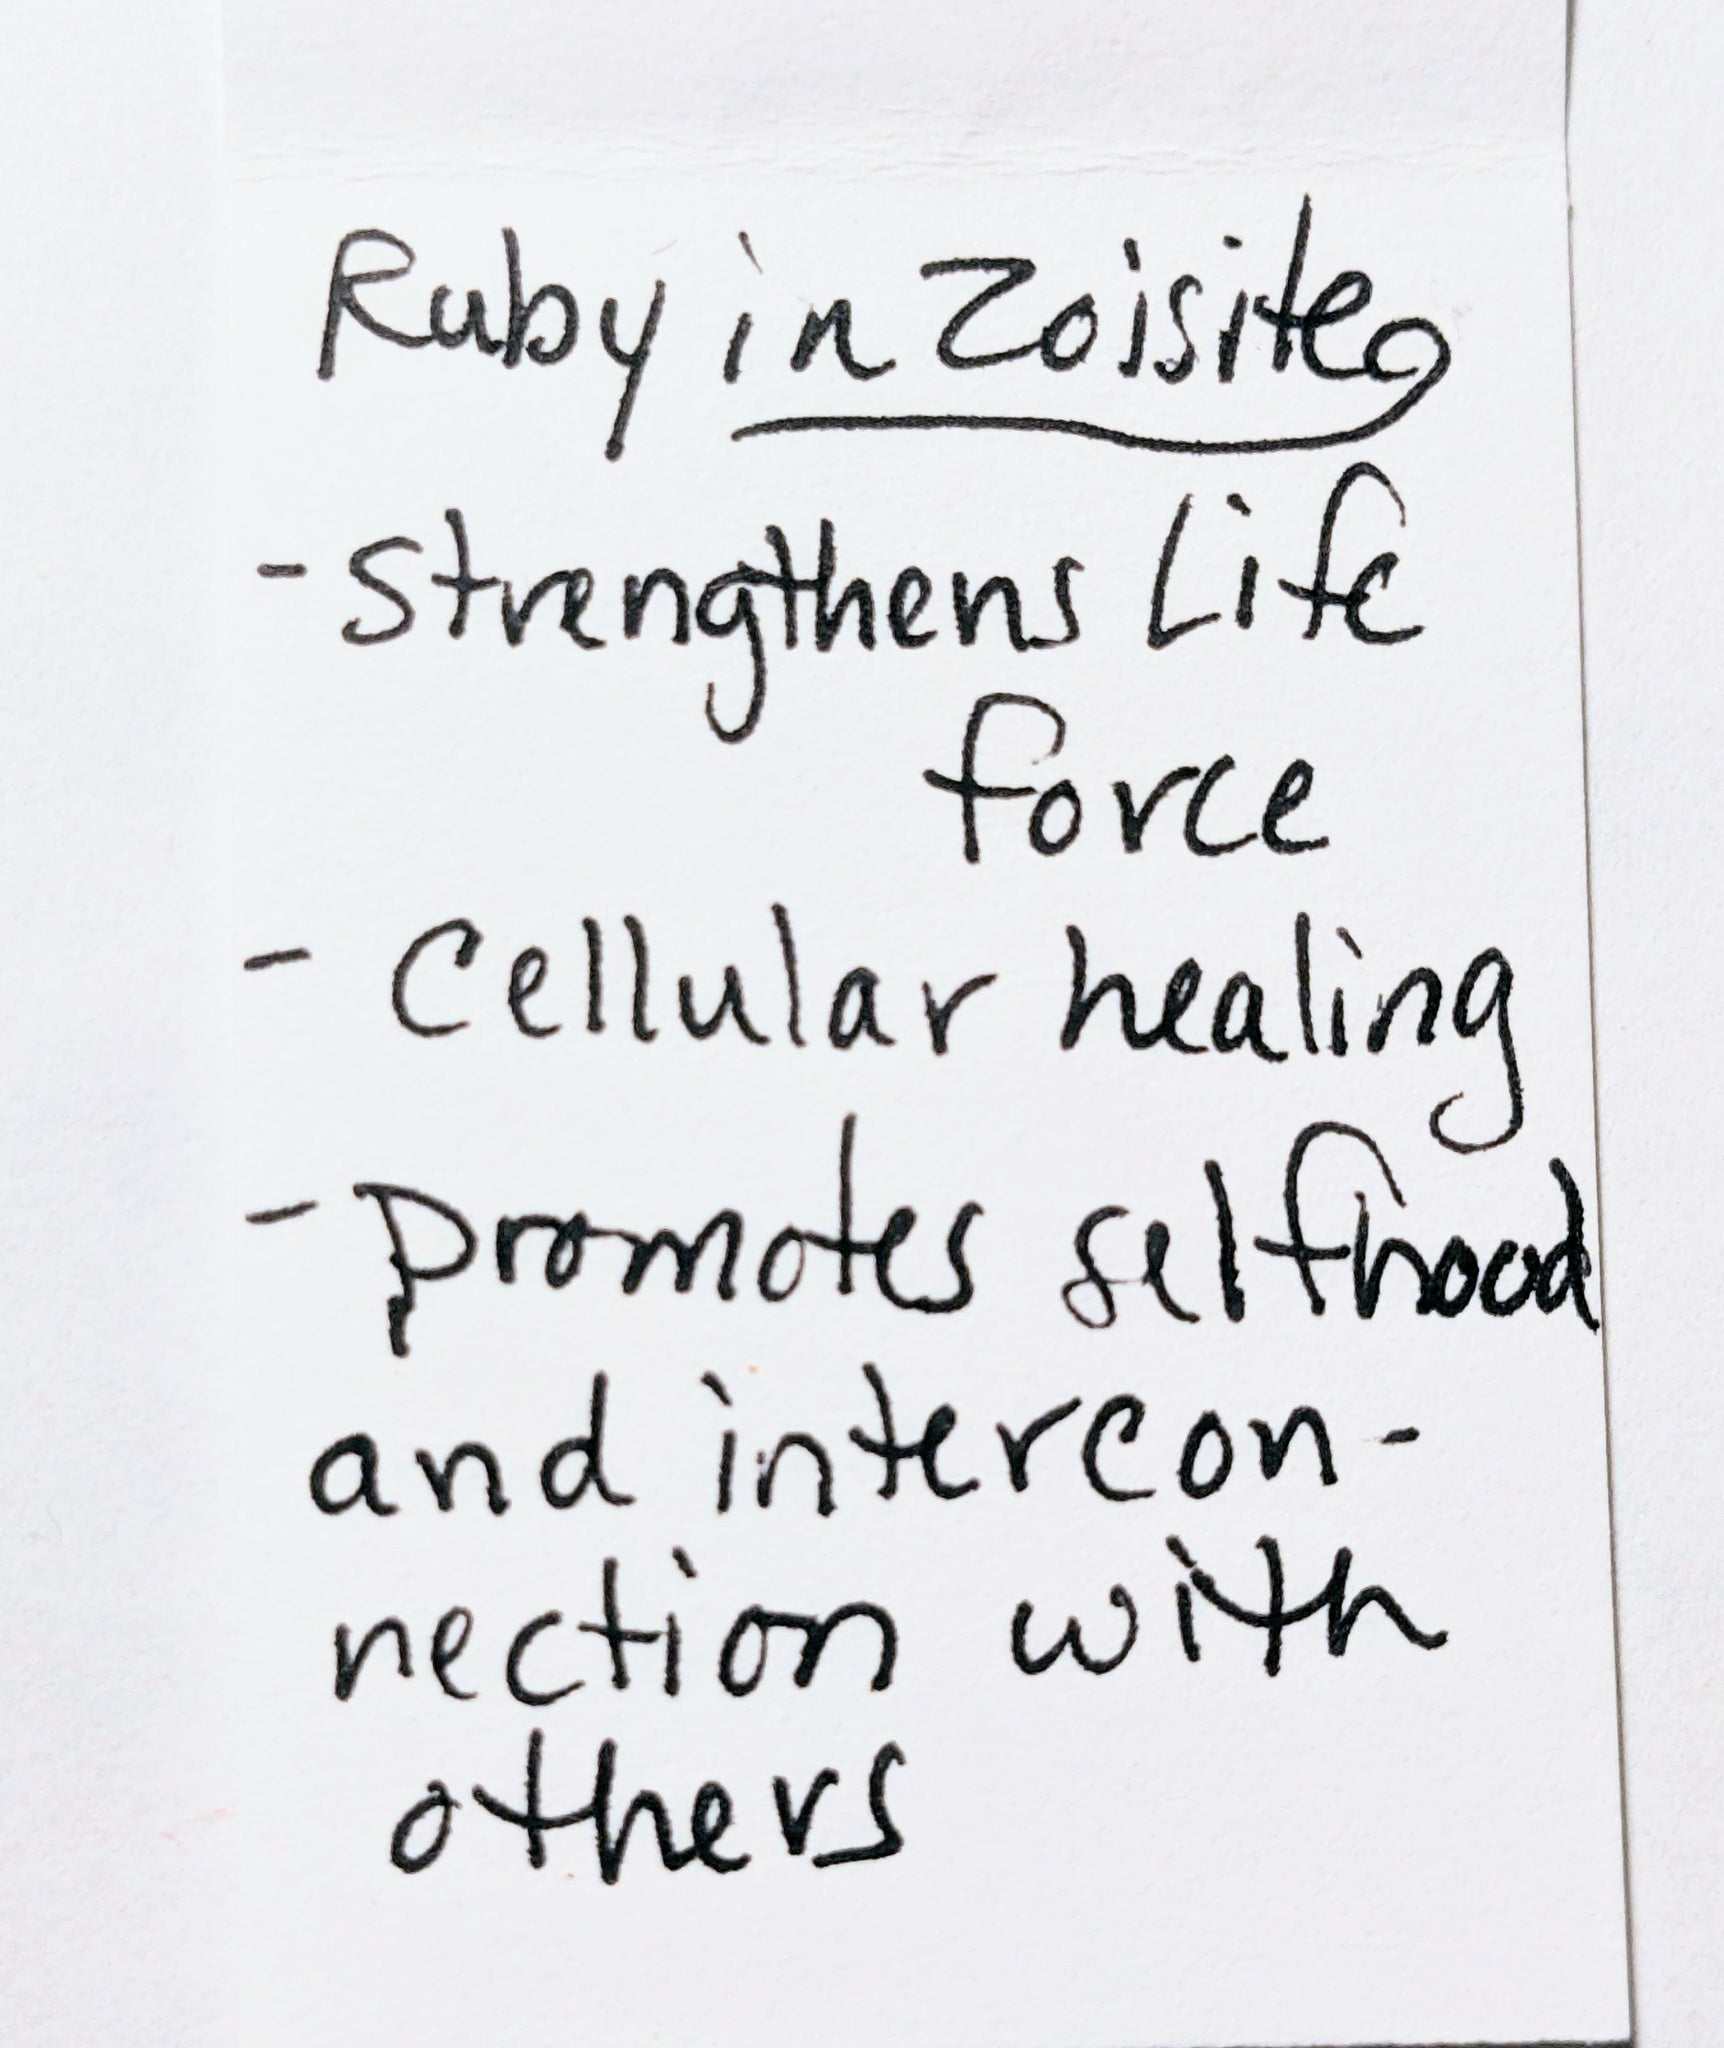 Ruby in Zoisite
- Strengthens Life
force
- Cellular healing
- Promotes selfhood
and intercon-
nection with
others